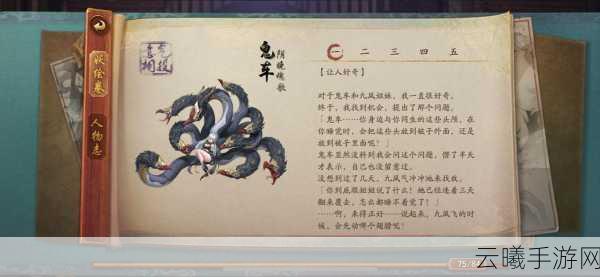 妖绘卷
人物志
鬼车
阴晓魂歌
一 二 三 四 五
【让人好奇】
对于鬼车和九凤姐妹，我一直很好奇。
终于，我找到机会，提出了那个问题。
「鬼车……你身边与你同生的这些头颅，在
你睡觉时，会把这些头放到被子外面，还是
放到被子里面呢！」
鬼车显然没料到我会问这个问题，愣了半天
才表示，自己也没留意过。
没想到过了几天，九凤气冲冲地来找我。
「你到底跟姐姐说了什么！她已经连着三天
翻来覆去，怎么都睡不着觉了！」
……啊，来得正好——说起来，九凤飞的时
候，会先动哪个翅膀呢！
云曦手游网